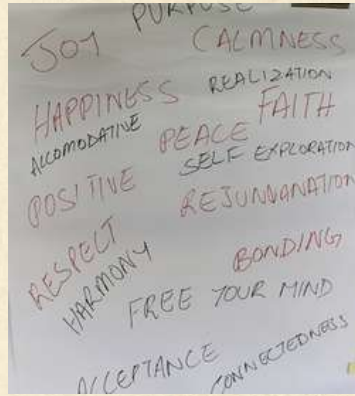 PURPOSE
JOY
CALMNESS
HAPPINESS
REALIZATION
ACCOMODATIVE
PEACE
FAITH
SELF EXPLORATION
POSITIVE
REJUNVANATION
RESPECT
HARMONY
BONDING
FREE YOUR MIND
ACCEPTANCE
CONNECTEDNESS